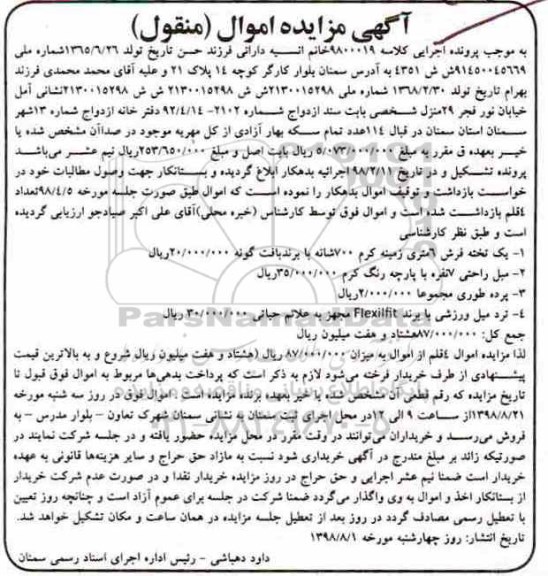 آگهی مزایده اموال (منقول)
به موجب پرونده اجرایی کلاسه ۹۸۰۰۰۱۹خانم انسیه دارائی فرزند حسن تاریخ تولد ۱۳۶۵/۶/۲۶شماره ملی
۹۱۴۵۰۰۴۵۶۶۹ش ش ۴۳۵۱ به آدرس سمنان بلوار کارگر کوچه ۱۴ پلاک ۲۱ و علیه آقای محمد محمدی فرزند
بهرام تاریخ تولد ۱۳۶۸/۲/۳۰ شماره ملی ۲۱۳۰۰۱۵۲۹۸ش ش ۲۱۳۰۰۱۵۲۹۸ ش ش ۲۱۳۰۰۱۵۲۹۸نشانی آمل
خیابان نور فجر ۲۹منزل شخصی بابت سند ازدواج شماره ۲۱۰۲- ۹۲/۴/۱۴ دفتر خانه ازدواج شماره ۱۳شهر
سمنان استان سمنان در قبال ۱۱۴عدد تمام سکه بهار آزادی از کل مهریه موجود در صداآن مشخص شده یا
خیر بعهده ق مقرر به مبلغ ۵/۰۷۳/۰۰۰/۰۰۰ ریال بابت اصل و مبلغ ۲۵۳/۶۵۰/۰۰۰ریال نیم عشر می‌باشد
پرونده تشکیل و در تاریخ ۹۸/۲/۱۱ اجرائیه بدهکار ابلاغ گردیده و بستانکار جهت وصول مطالبات خود در
خواست بازداشت و توقیف اموال بدهکار را نموده است که اموال طبق صورت جلسه مورخه ۹۸/۴/۵تعداد
۴قلم بازداشت شده است و اموال فوق توسط کارشناس (خبره محلی)آقای علی اکبر صیادجو ارزیابی گردیده
است و طبق نظر کارشناسی
۱- یک تخته فرش ۶متری زمینه کرم ۷۰۰شانه با برندبافت گونه ۲۰/۰۰۰/۰۰۰ریال
۲- مبل راحتی ۷نفره با پارچه رنگ کرم ۳۵/۰۰۰/۰۰۰ریال
۳- پرده طوری مجموعا ۲/۰۰۰/۰۰۰ریال
۴- ترد میل ورزشی با برند Flexilfit مجهز به علائم حیاتی ۳۰/۰۰۰/۰۰۰ ریال
جمع کل: ۸۷/۰۰۰/۰۰۰هشتاد و هفت میلیون ریال
لذا مزایده اموال ۴قلم از اموال به میزان ۸۷/۰۰۰/۰۰۰ ریال (هشتاد و هفت میلیون ریال شروع و به بالاترین قیمت
پیشنهادی از طرف خریدار فروخته می‌شود لازم به ذکر است که پرداخت بدهی‌ها مربوط به اموال فوق قبول تا
تاریخ مزایده که رقم قطعی آن مشخص شده یا خیر بعهده برنده مزایده است . اموال فوق در روز سه شنبه مورخه
۱۳۹۸/۸/۲۱از ساعت ۹ الی ۱۲در محل اجرای ثبت سمنان به نشانی سمنان شهرک تعاون - بلوار مدرس - به
فروش می‌رسد و خریداران می‌توانند در وقت مقرر در محل مزایده حضور یافته و در جلسه شرکت نمایند در
صورتیکه زائد بر مبلغ مندرج در آگهی خریداری شود نسبت به مازاد حق حراج و سایر هزینه‌ها قانونی به عهده
خریدار است ضمنا نیم عشر اجرایی و حق حراج در روز مزایده خریدار نقدا و در صورت عدم شرکت خریدار
از بستانکار اخذ و اموال به وی واگذار می‌گردد ضمنا شرکت در جلسه برای عموم آزاد است و چنانچه روز تعیین
با تعطیل رسمی مصادف گردد در روز بعد از تعطیل جلسه مزایده در همان ساعت و مکان تشکیل خواهد شد.
تاریخ انتشار: روز چهارشنبه مورخه ۱۳۹۸/۸/۱
داود دهباشی - رئیس اداره اجرای اسناد رسمی سمنان
ParsNamadData
۰۲۱-۸۸۳۴۹۶۷۰-۵